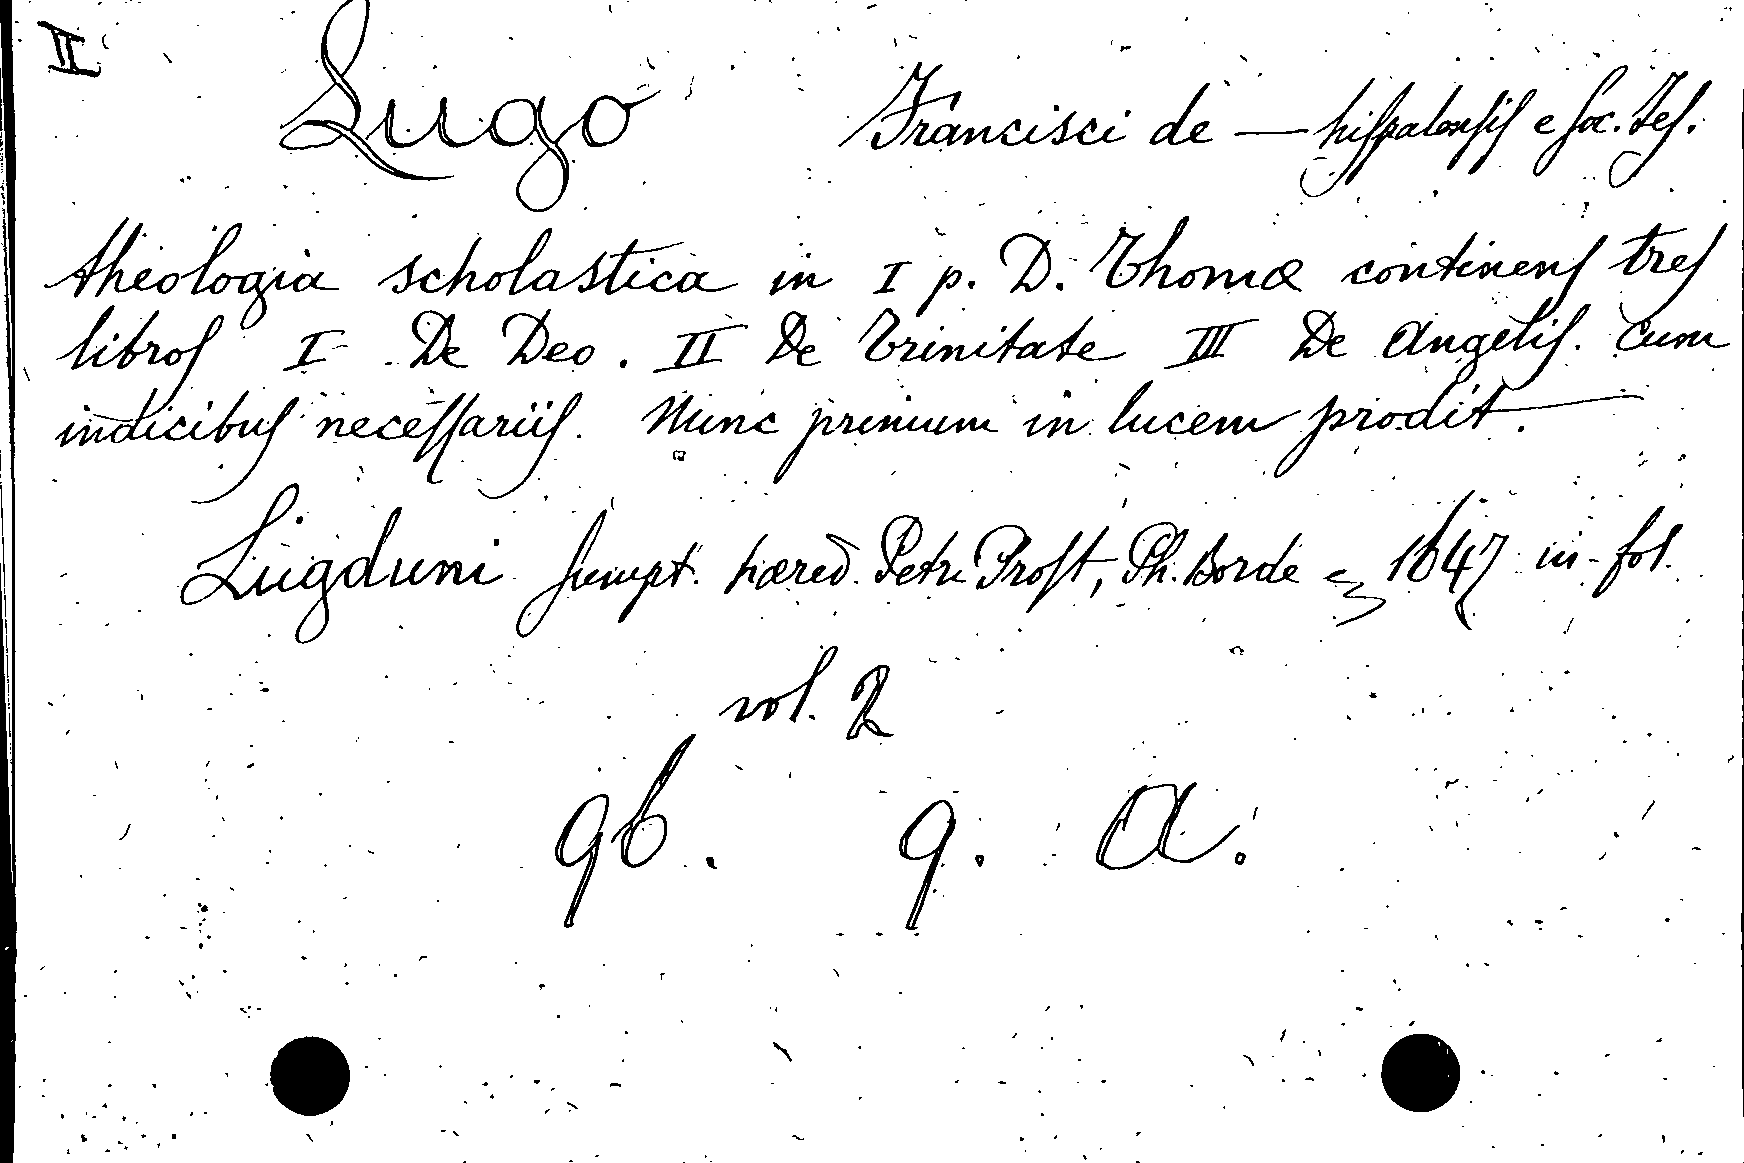 II
Lugo Francisci de — hispalensis e Soc. Jes.
theologia scholastica in I p. D. Thomæ continens tres
libros I De Deo. II De Trinitate III De Angelis. Cum
indicibus necessariis. Nunc primum in lucem prodit.
Lugduni sumpt. hæred. Petri Prost, Ph. Borde 1647 in-fol.
vol. 2
9b. 9. A.